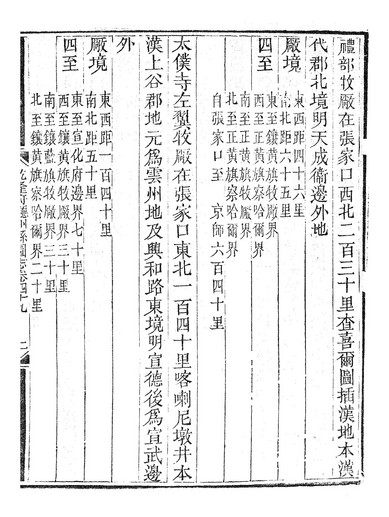 禮部牧厰在張家口西北二百三十里查喜爾圖插漢地本漢
代郡北境明天成衞邊外地
厰境
東西距四十六里
南北距六十五里
四至
東至鑲黃旗牧厰界
西至正黃旗察哈爾界
南至正黃旗牧厰界
北至正黃旗察哈爾界
自張家口至 京師六百四十里
太僕寺左翼牧厰在張家口東北一百四十里喀喇尼墩井本
漢上谷郡地元爲雲州地及興和路東境明宣德後爲宣武邊
外
厰境
東西距一百四十里
南北距五十里
四至
東至宣化府邊界七十里
西至鑲黃旗牧厰界三十里
南至鑲藍旗牧厰界三十里
北至鑲黃旗察哈爾界二十里